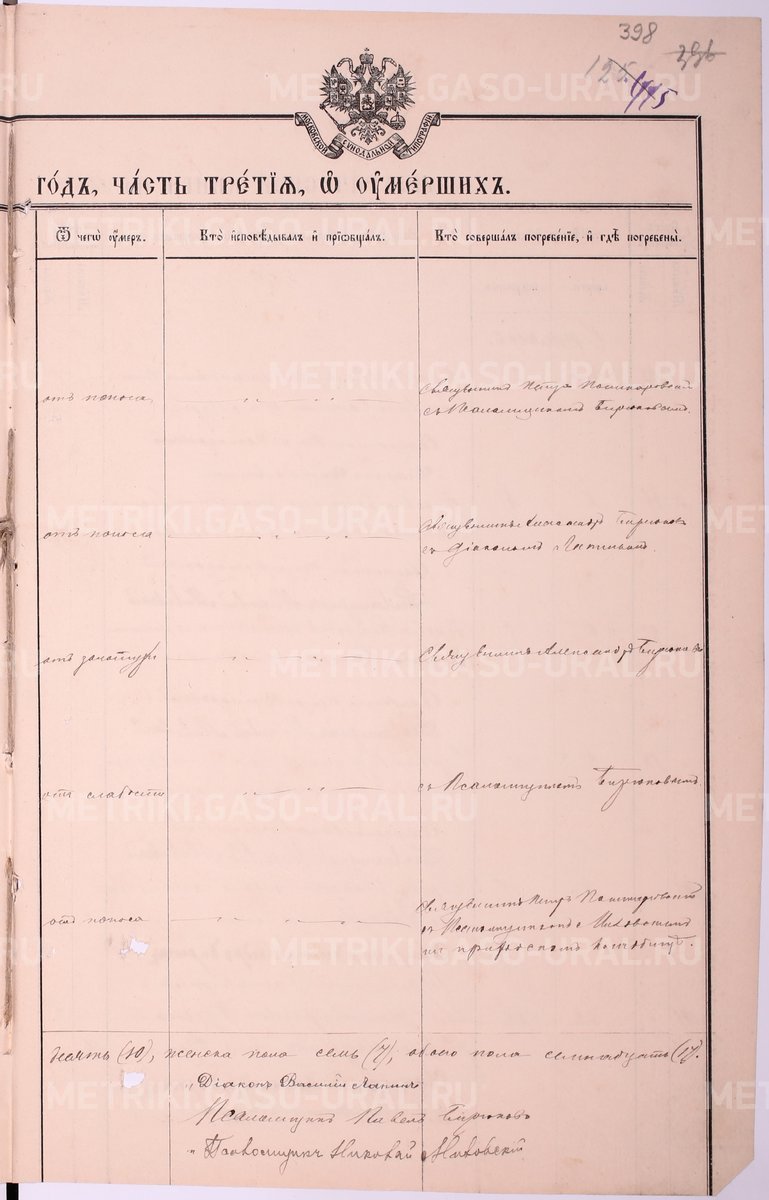 398
396
125
445
МОСКОВСКОЙ СѴНОДАЛЬНОЙ ТИПОГРАФІИ
го́дъ, ча́сть тре́тїѧ, ѡ҆ ᲂу҆ме́ршихъ.
Ѿ чегѡ̀ ᲂу҆́меръ.
Кто̀ и҆сповѣ́дывалъ и҆ прїѡбща́лъ.
Кто̀ соверша́лъ погребе́нїе, и҆ гдѣ̀ погребены̀.
отъ поноса
Священникъ Петръ
съ Псаломщикомъ Бирюковымъ.
отъ поноса
Священникъ Александръ Бирюковъ
съ Діакономъ Лапинымъ.
отъ
Священникъ Александръ Бирюковъ
отъ слабости
съ Псаломщикомъ Бирюковымъ
отъ поноса
Священникъ Петръ
съ Псаломщикомъ Миковскимъ
на приходскомъ кладбищѣ.
десять (10), женска пола семь (7), обоего пола семнадцать (17).
Діаконъ Василій Лапинъ
Псаломщикъ Павелъ Бирюковъ
Псаломщикъ Николай Миковскій
METRIKI.GASO-URAL.RU